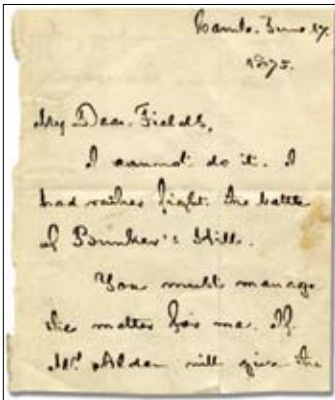 Camb. June 17.
1875.
My Dear Fields,
I cannot do it. I
had rather fight the battle
of Bunker's Hill.
You must manage
the matter for me. If
Mr. Alden will give the